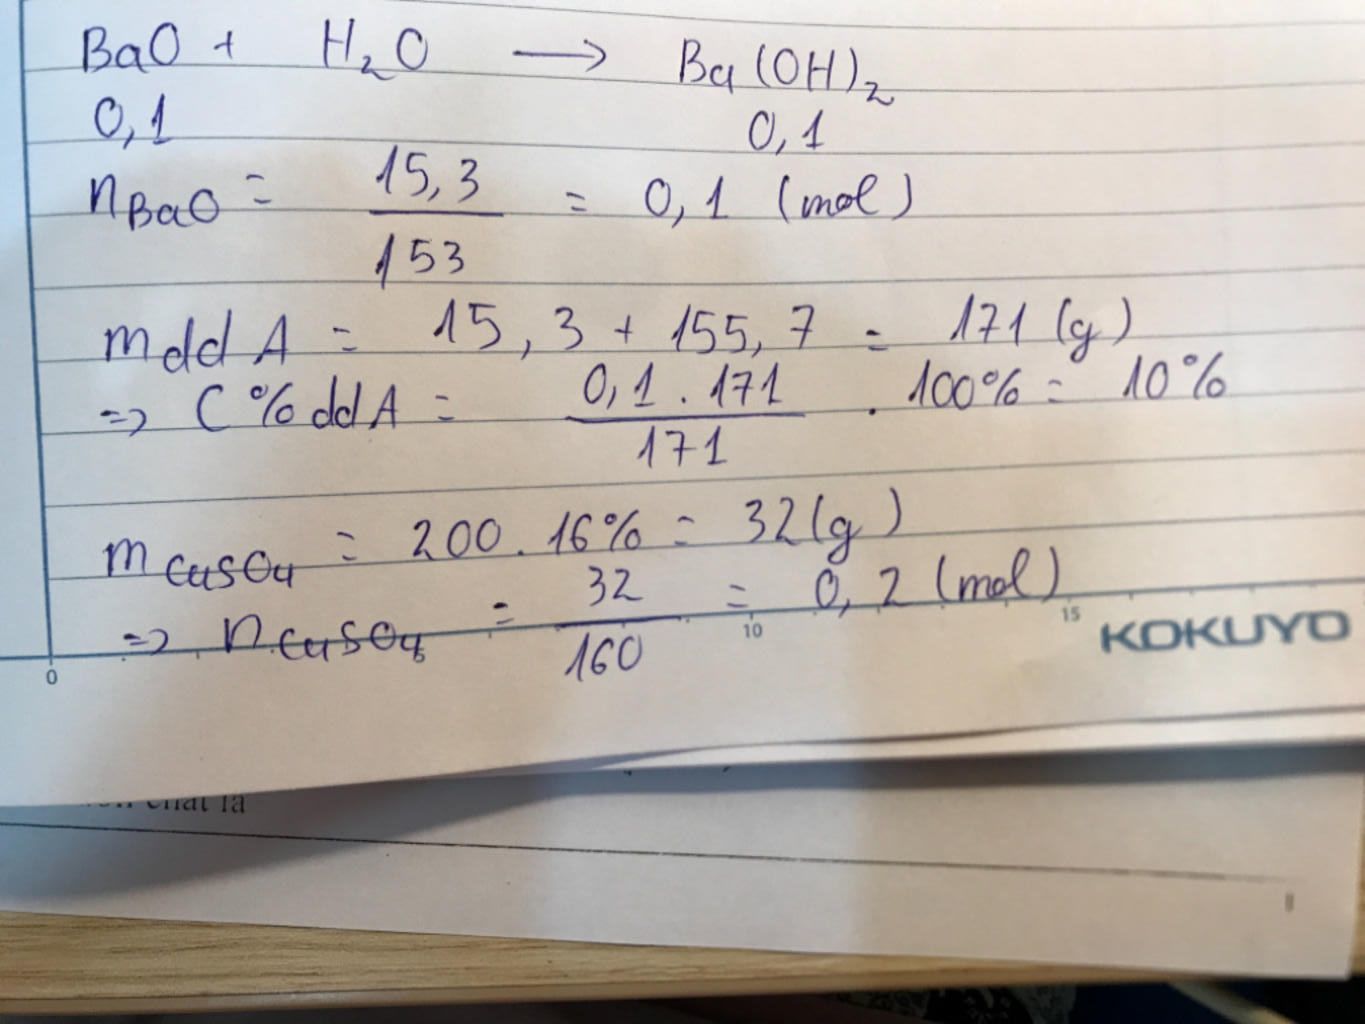 BaO + H₂O ⟶ Ba(OH)₂
0,1 0,1
nBaO = 15,3 / 153 = 0,1 (mol)
mdd A = 15,3 + 155,7 = 171 (g)
=> C% ddA = 0,1 . 171 / 171 . 100% = 10%
mCuSO₄ = 200 . 16% = 32 (g)
=> nCuSO₄ = 32 / 160 = 0,2 (mol)
0 10 15
KOKUYO
chất là